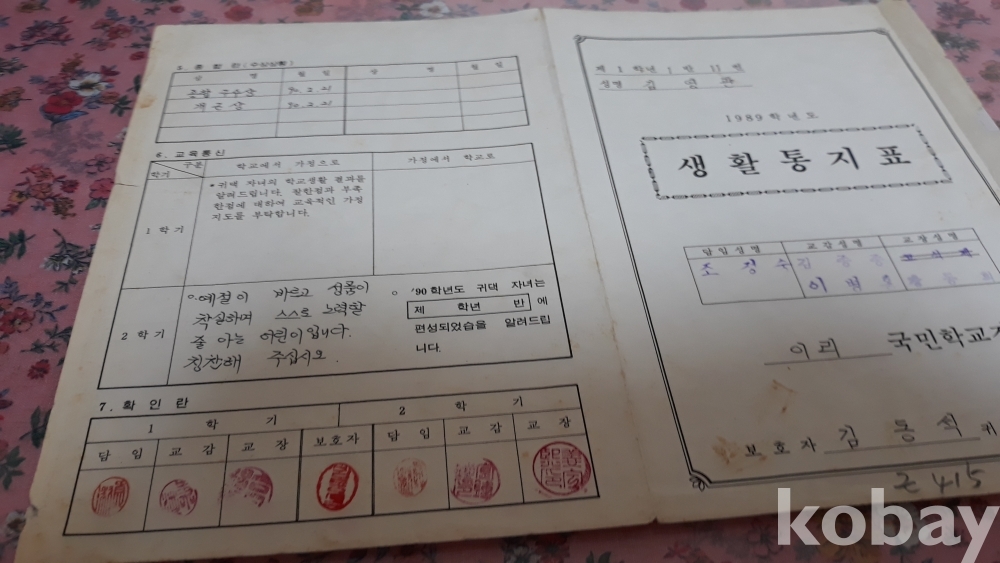 5. 종 합 란 (수상상황)
상 명 월 일 상 명 월 일
90. 2. 21
개근상 90. 2. 21
6. 교육통신
구분 학기 학교에서 가정으로 가정에서 학교로
1 학 기
• 귀댁 자녀의 학교생활 결과를
알려드립니다. 잘한점과 부족
한점에 대하여 교육적인 가정
지도를 부탁합니다.
2 학 기
○ 예절이 바르고 심품이
착실하며 스스로 노력할
줄 아는 어린이입니다.
칭찬해 주십시오.
○ '90학년도 귀댁 자녀는
제 학년 반 에
편성되었음을 알려드립
니다.
7. 확 인 란
1 학 기 2 학 기
담 임 교 감 교 장 보호자 담 임 교 감 교 장
제 1 학년 1 반 11 번
성명 김 영 관
1989 학 년 도
생 활 통 지 표
담임성명 교감성명 교장성명
조 정 수 김
이
이리 국민학교
보 호 자 김 동 석 귀
415
kobay